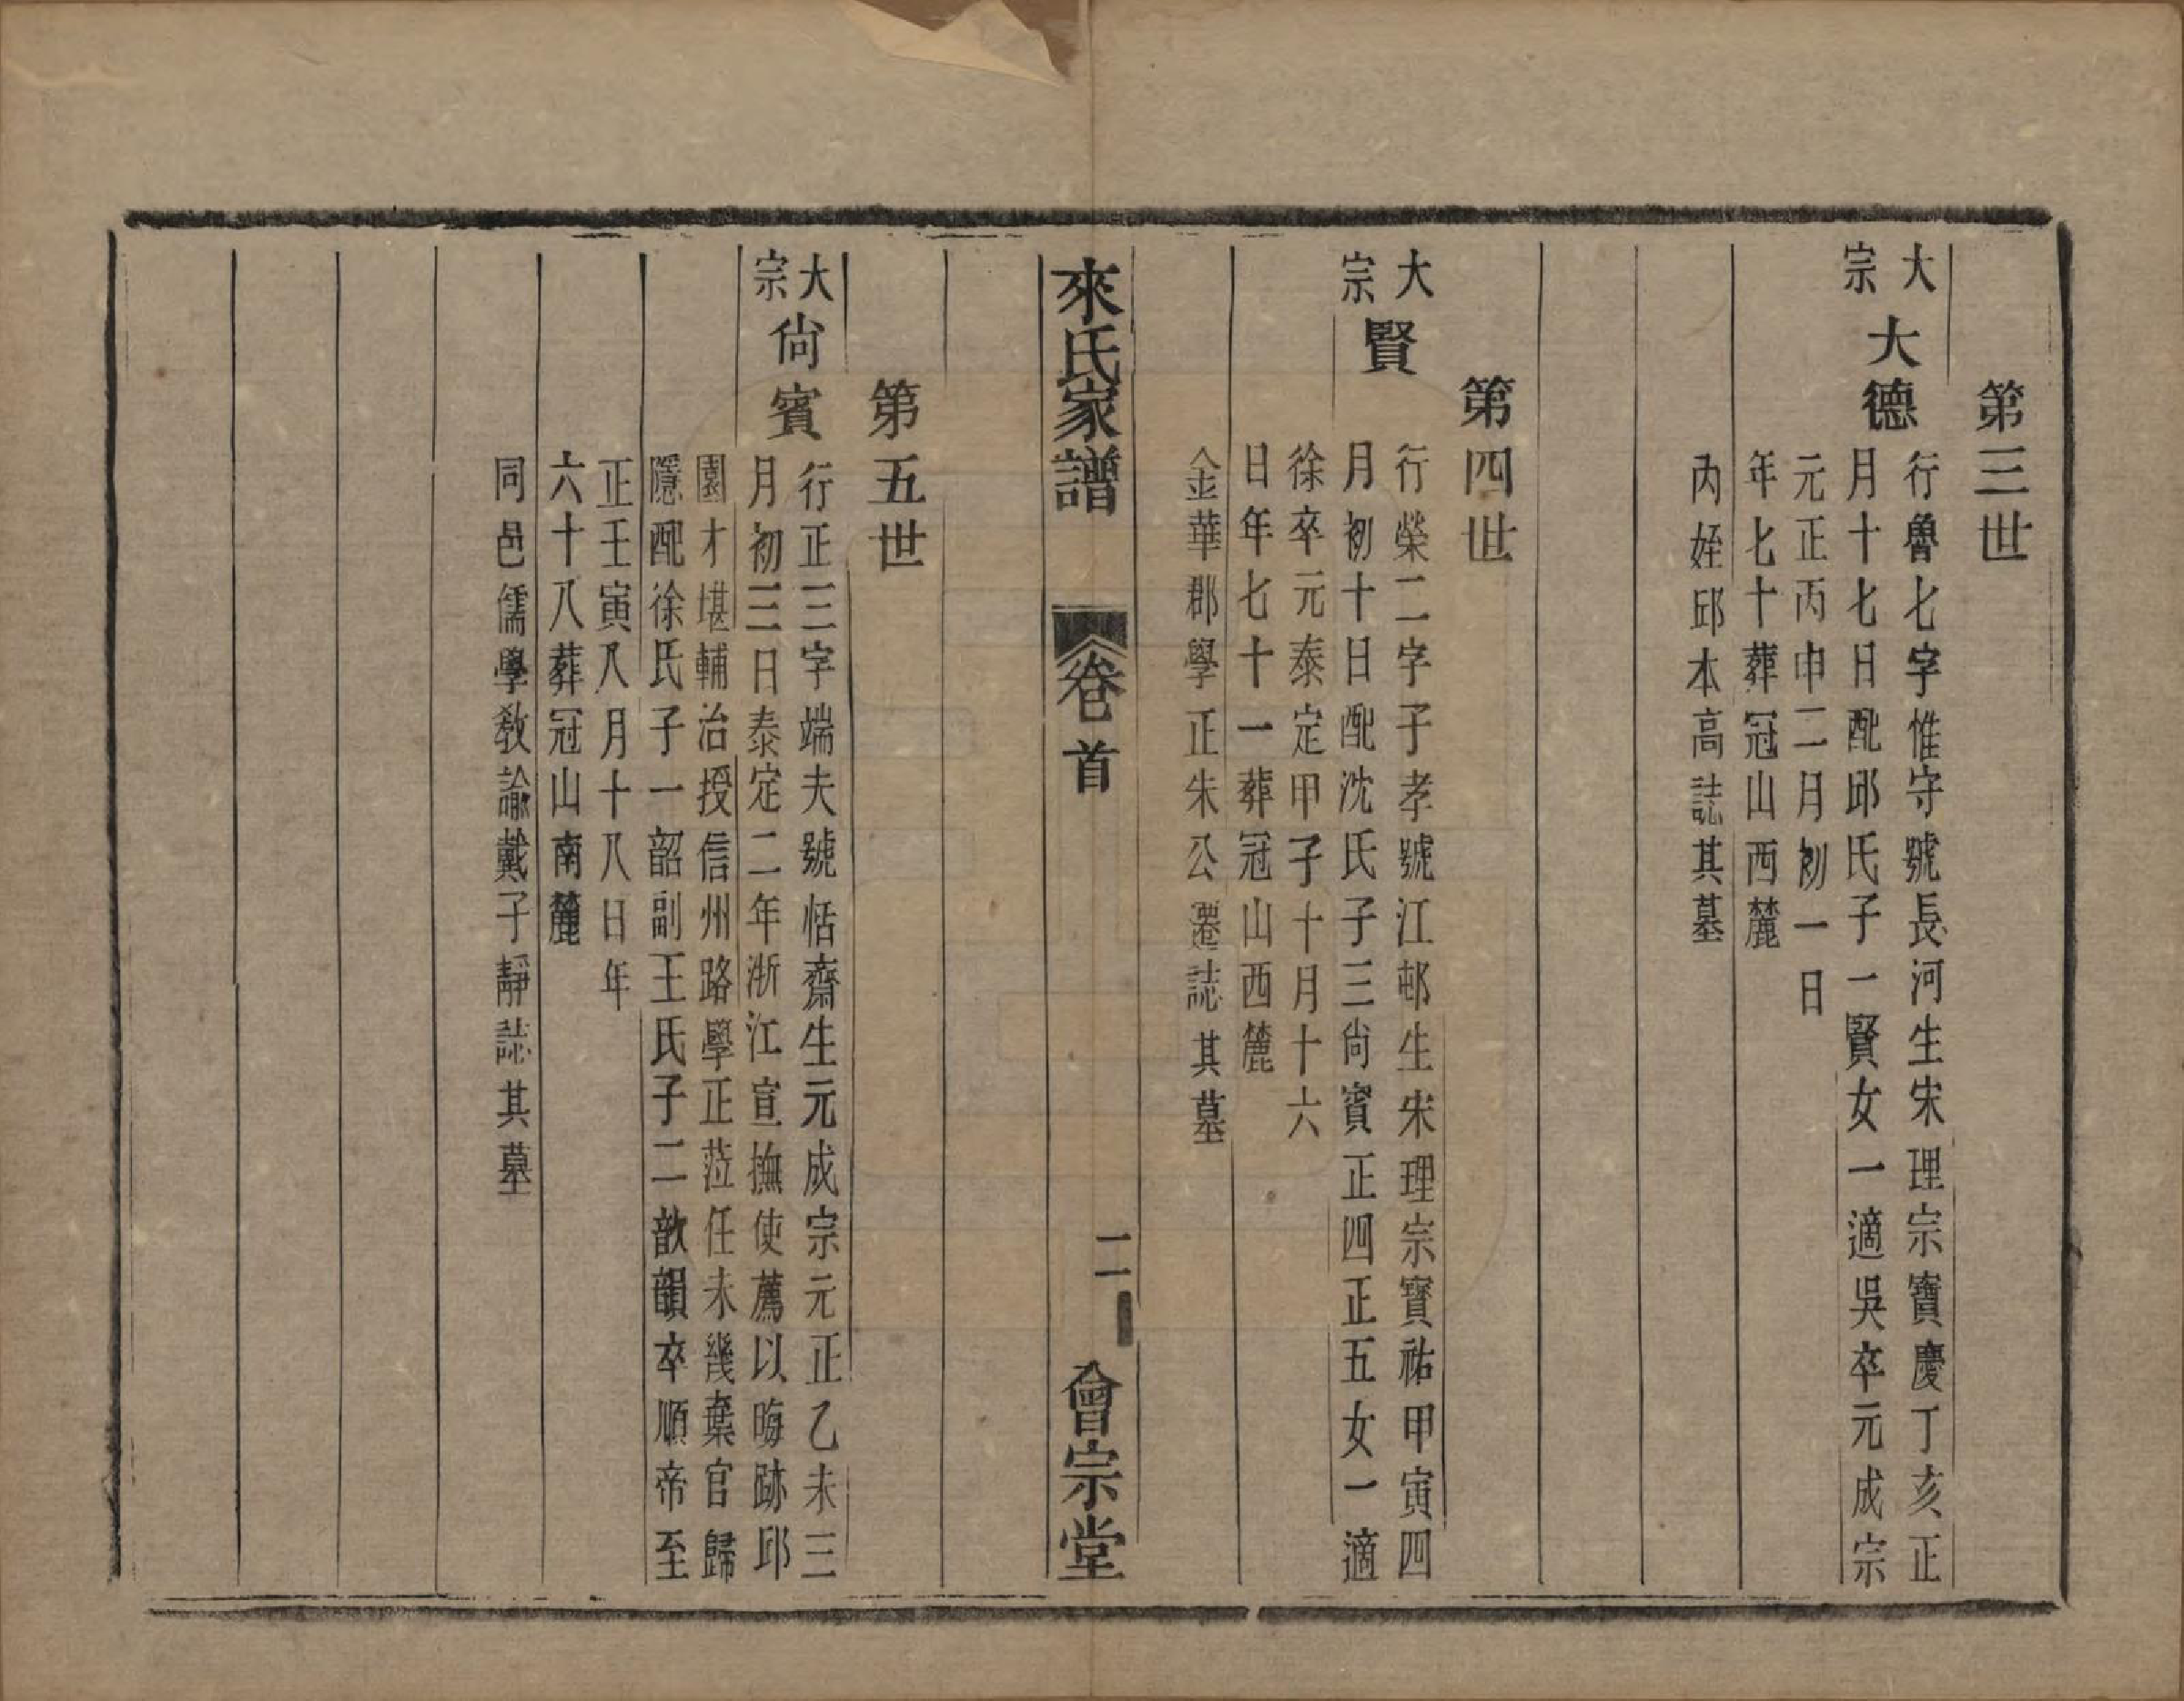 第三世
大宗
大德
行魯七字惟守號長河生宋理宗寶慶丁亥正
月十七日配邱氏子一賢女一適吳卒元成宗
元正丙申二月初一日
年七十葬冠山西麓
內姪邱本高誌其墓
第四世
大宗
賢
行榮二字子孝號江邨生宋理宗寶祐甲寅四
月初十日配沈氏子三尙賓正四正五女一適
徐卒元泰定甲子十月十六
日年七十一葬冠山西麓
金華郡學正朱公遷誌其墓
來氏家譜
卷首
二
會宗堂
第五世
大宗
尙賓
行正三字端夫號恬齋生元成宗元正乙未三
月初三日泰定二年浙江宣撫使薦以晦跡邱
園才堪輔治授信州路學正蒞任未幾棄官歸
隱配徐氏子一韶副王氏子二歆韻卒順帝至
正壬寅八月十八日年
六十八葬冠山南麓
同邑儒學教諭戴子靜誌其墓